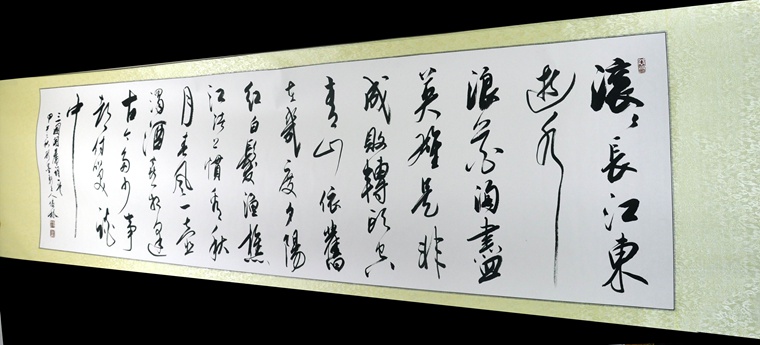 滚〻長江東
逝水
浪花淘盡
英雄是非
成敗轉頭空
青山依舊
在幾度夕陽
紅白髮漁樵
江渚上慣看秋
月春風一壺
濁酒喜相逢
古今多少事
都付笑談
中
三國演義
甲午秋